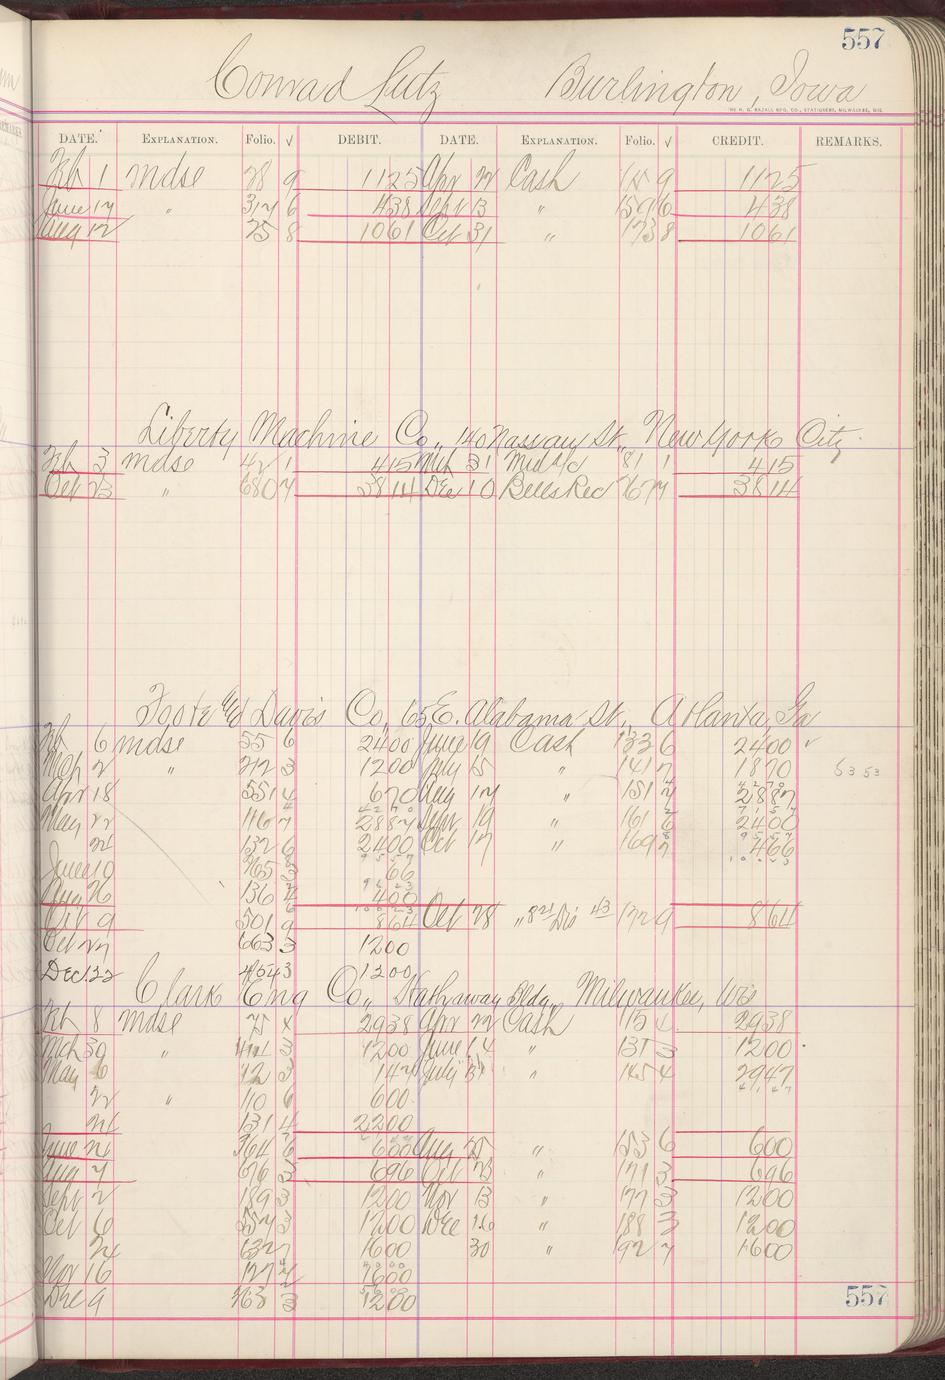 557
Conrad Lutz Burlington, Iowa
THE H. G. RAZALL MFG. CO., STATIONERS, MILWAUKEE, WIS.
DATE. EXPLANATION. Folio. √ DEBIT. DATE. EXPLANATION. Folio. √ CREDIT. REMARKS.
Feb 1 mdse 78 9 1125 Apr 22 Cash 115 9 1125
June 17 " 317 6 438 Sept 13 " 159 6 438
Aug 12 75 8 1061 Oct 31 " 173 8 1061
Liberty Machine Co., 140 Nassau St., New York City
Feb 3 mdse 42 1 415 Mch 31 Mdse/c 81 1 415
Oct 23 " 680 7 3814 Dec 10 Bells Rec 767 7 3814
Foote & Davis Co., 65 E. Alabama St., Atlanta, Ga
Feb 6 mdse 55 6 2400 June 9 Cash 133 6 2400 √
Mch 2 " 212 3 1200 July 5 " 141 7 1870 53 53
Apr 18 551 4 670 Aug 17 " 151 2887
May 22 116 7 2887 Sept 19 " 161 6 2400
24 132 6 2400 Oct 17 " 169 466
June 10 765 3 66
Aug 26 136 4 400
Oct 9 501 9 864 Oct 28 " 172 9 864
Oct 27 663 3 1200
Dec. 22 454 3 1200
Clark Eng Co., Hathaway Bldg., Milwaukee, Wis
Feb 8 mdse 75 4 2938 Apr 22 Cash 115 4 2938
Mch 30 " 441 3 1200 June 14 " 135 3 1200
May 6 12 3 147 July 31 " 145 4 2947
22 " 110 6 600
24 131 4 2200
June 24 364 6 600 Aug 25 " 153 6 600
Aug 7 676 3 696 Oct 23 " 171 3 696
Sept 2 189 3 1200 Nov 13 " 177 3 1200
Oct 6 557 3 1200 Dec 16 " 188 3 1200
24 632 7 1600 30 " 192 7 1600
Nov 16 127 7600
Dec 9 763 3 1200
557